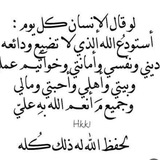 لو قال الإنسان كل يوم :
أستودع الله الذي لا تضيع ودائعه
ديني ونفسي وأمانتي وخواتيم عملي
وبيتي وأهلي وأحبتي ومالي
وجميع مَا نعم الله به علي
Hkkl
لحفظ الله له ذلك كُله